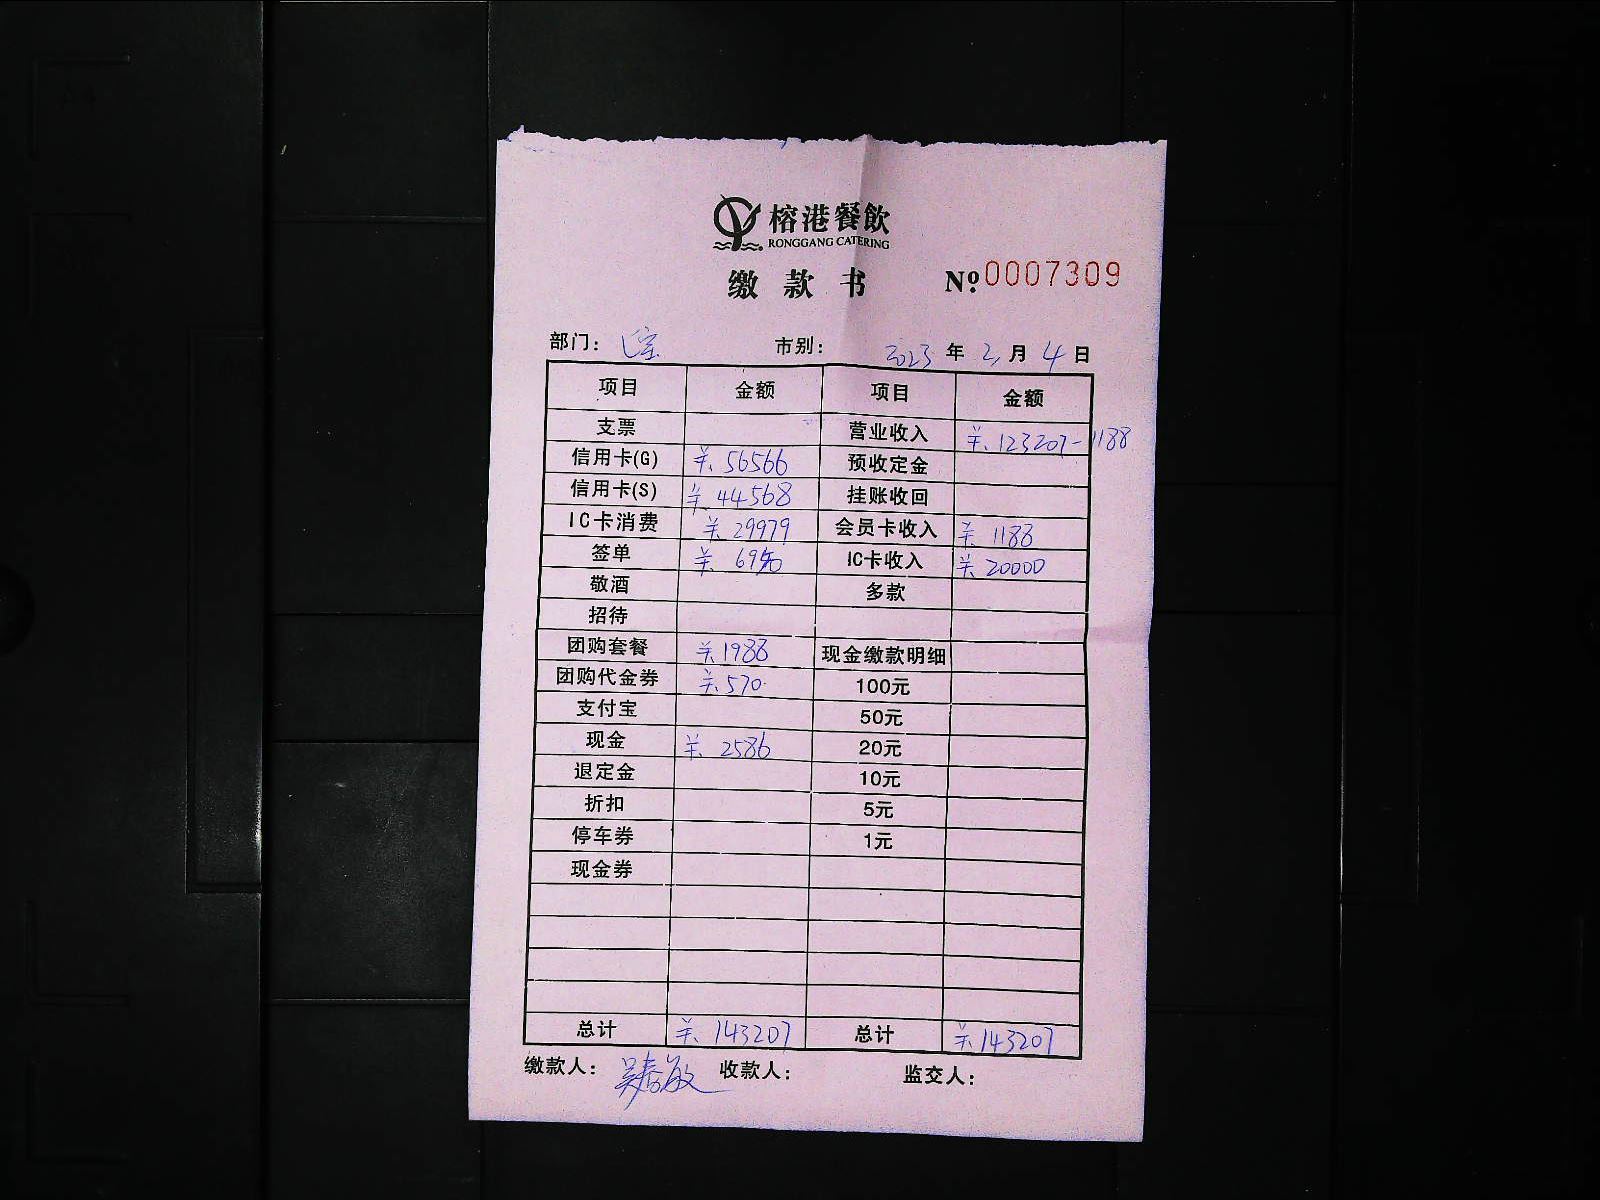 榕港餐飲
RONGGANG CATERING
缴款书 № 0007309
部门: 市别: 2023年2月4日
项目 金额 项目 金额
支票 营业收入 ¥.123207-1188
信用卡(G) ¥.56566 预收定金
信用卡(S) ¥.44568 挂账收回
IC卡消费 ¥.29979 会员卡收入 ¥.1188
签单 ¥.6950 IC卡收入 ¥.20000
敬酒 多款
招待
团购套餐 ¥.1988 现金缴款明细
团购代金券 ¥.570 100元
支付宝 50元
现金 ¥.2586 20元
退定金 10元
折扣 5元
停车券 1元
现金券
总计 ¥.143207 总计 ¥.143207
缴款人: 吴春敏 收款人: 监交人: